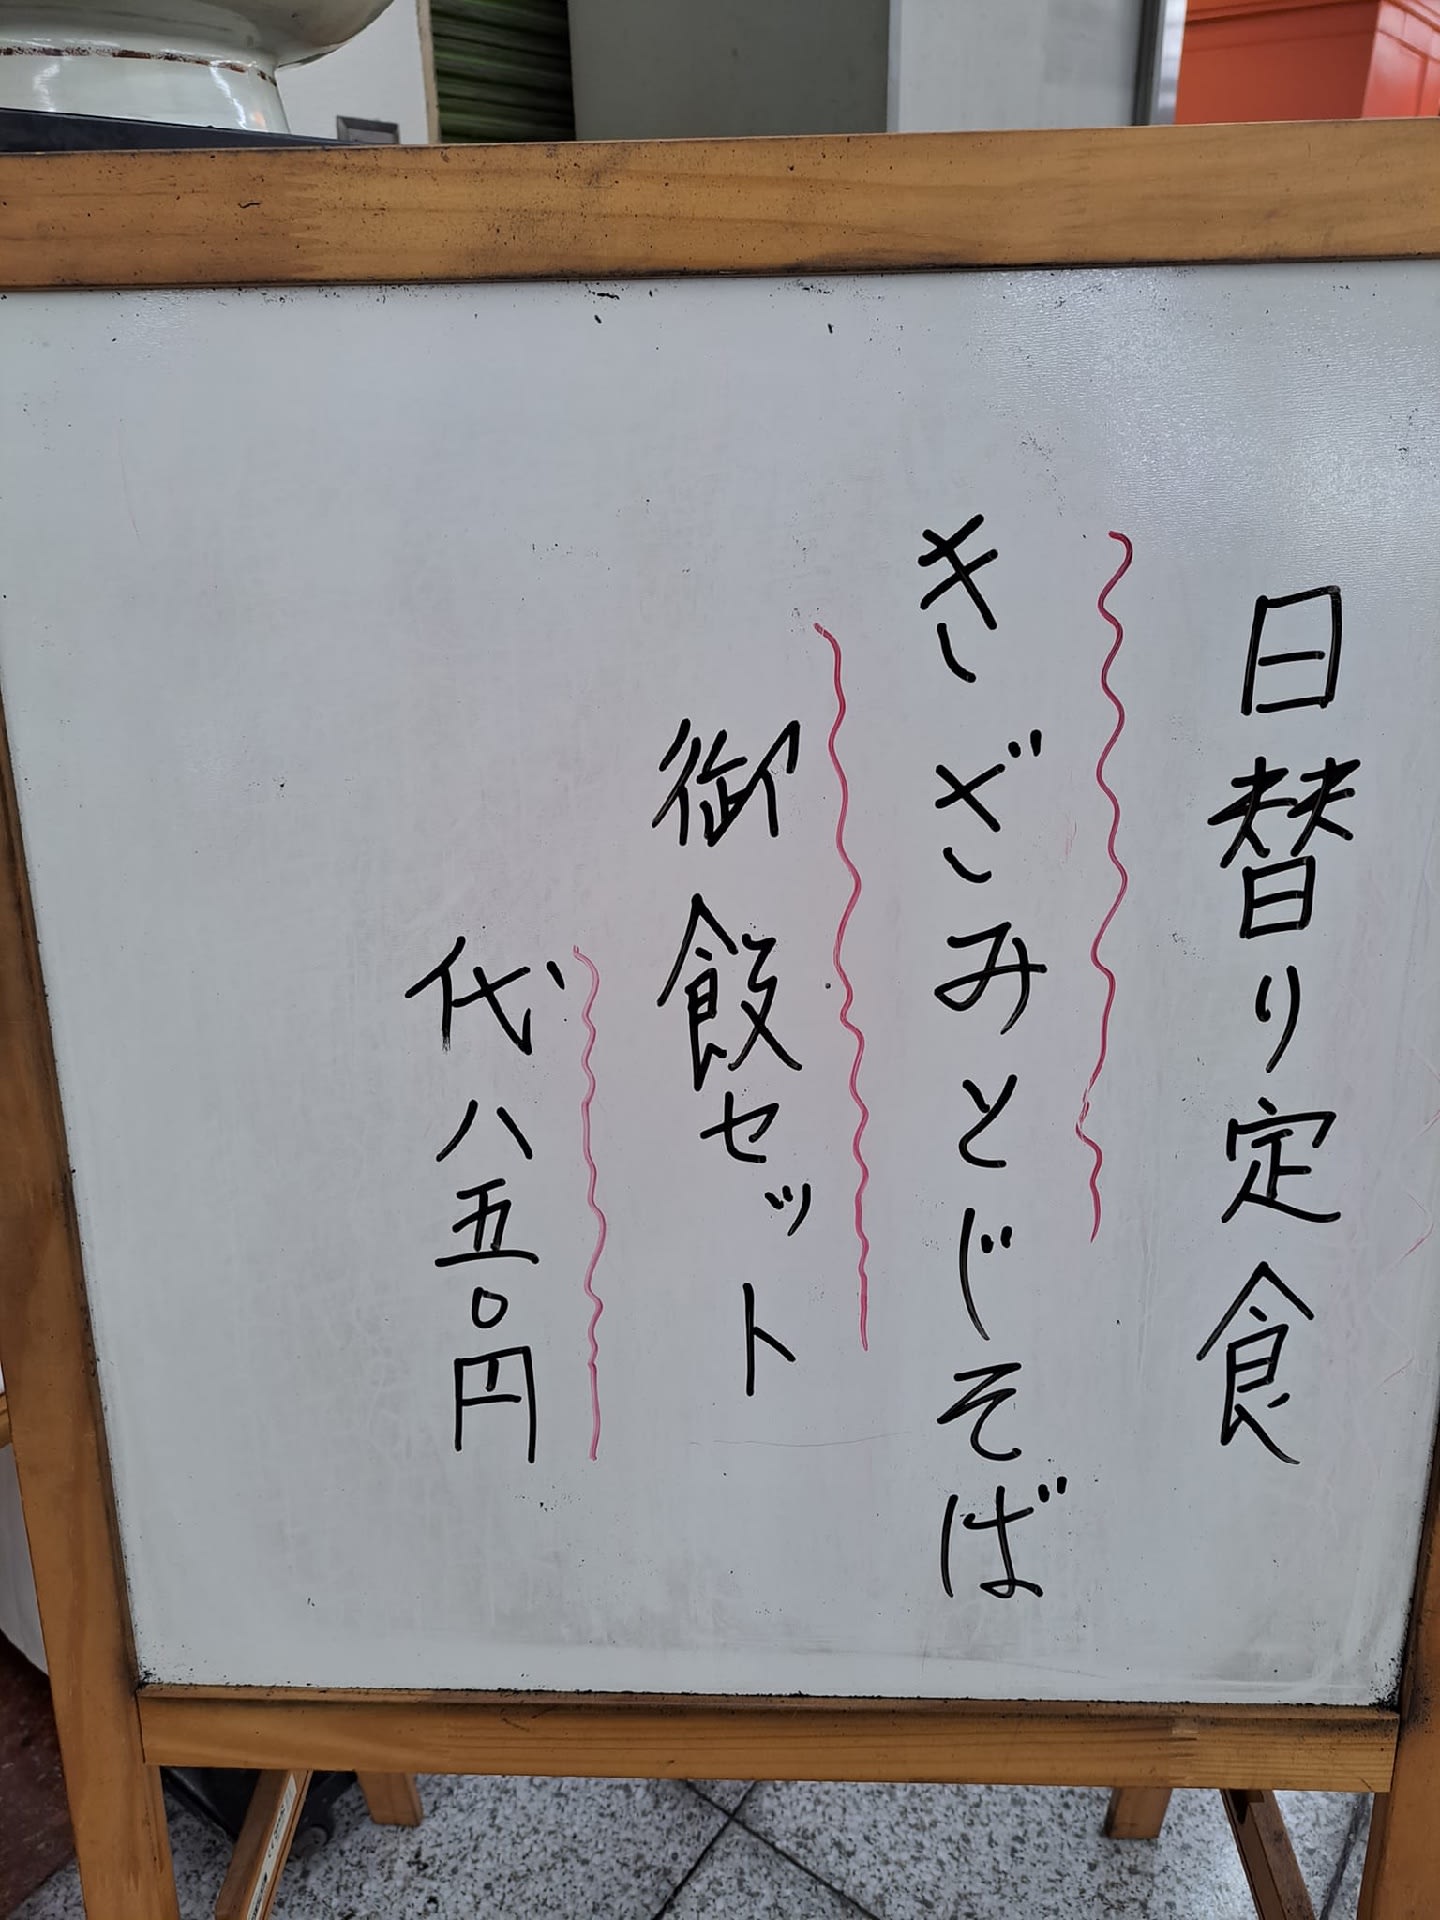 日替り定食
きざみとじそば
御飯セット
代八五〇円